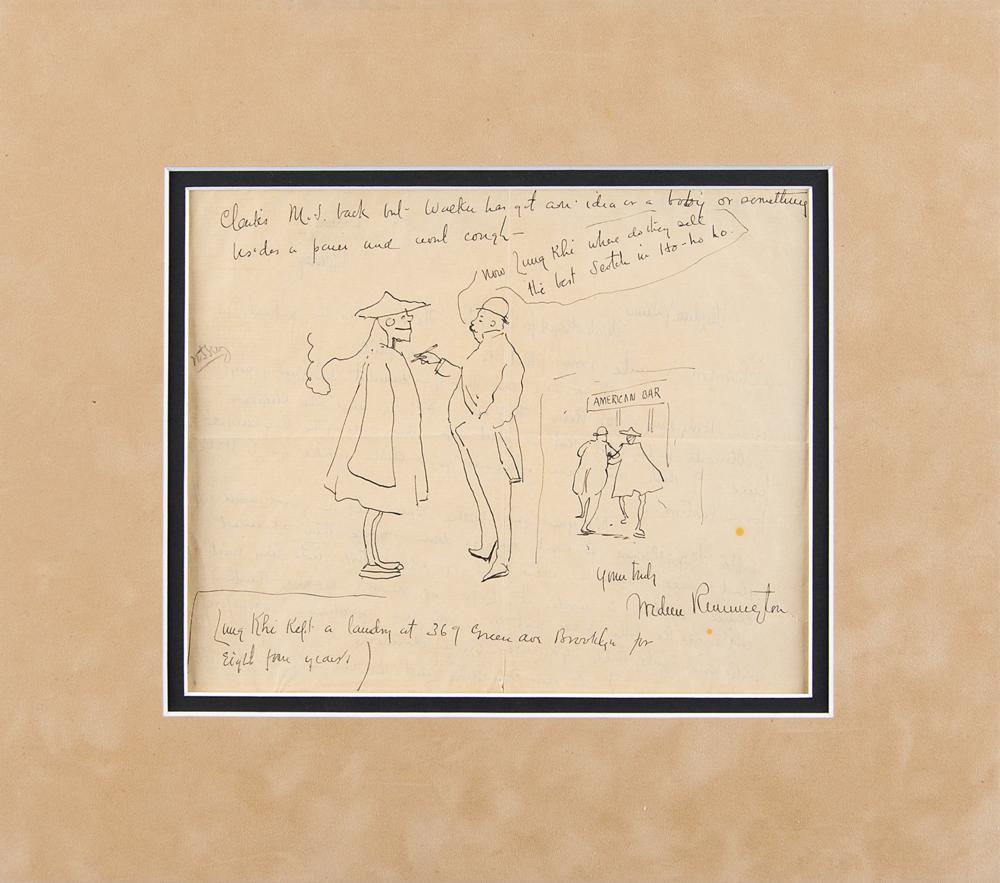 Clark's M.S. back but - Walker has got an idea or a baby or something
besides a power and wont cough -
now Lung Khi where do they sell
the best Scotch in Ho-ho ho.
AMERICAN BAR
Yours truly
Frederic Remington
Lung Khi Kept a laundry at 369 Green ave Brooklyn for
Eight four years)